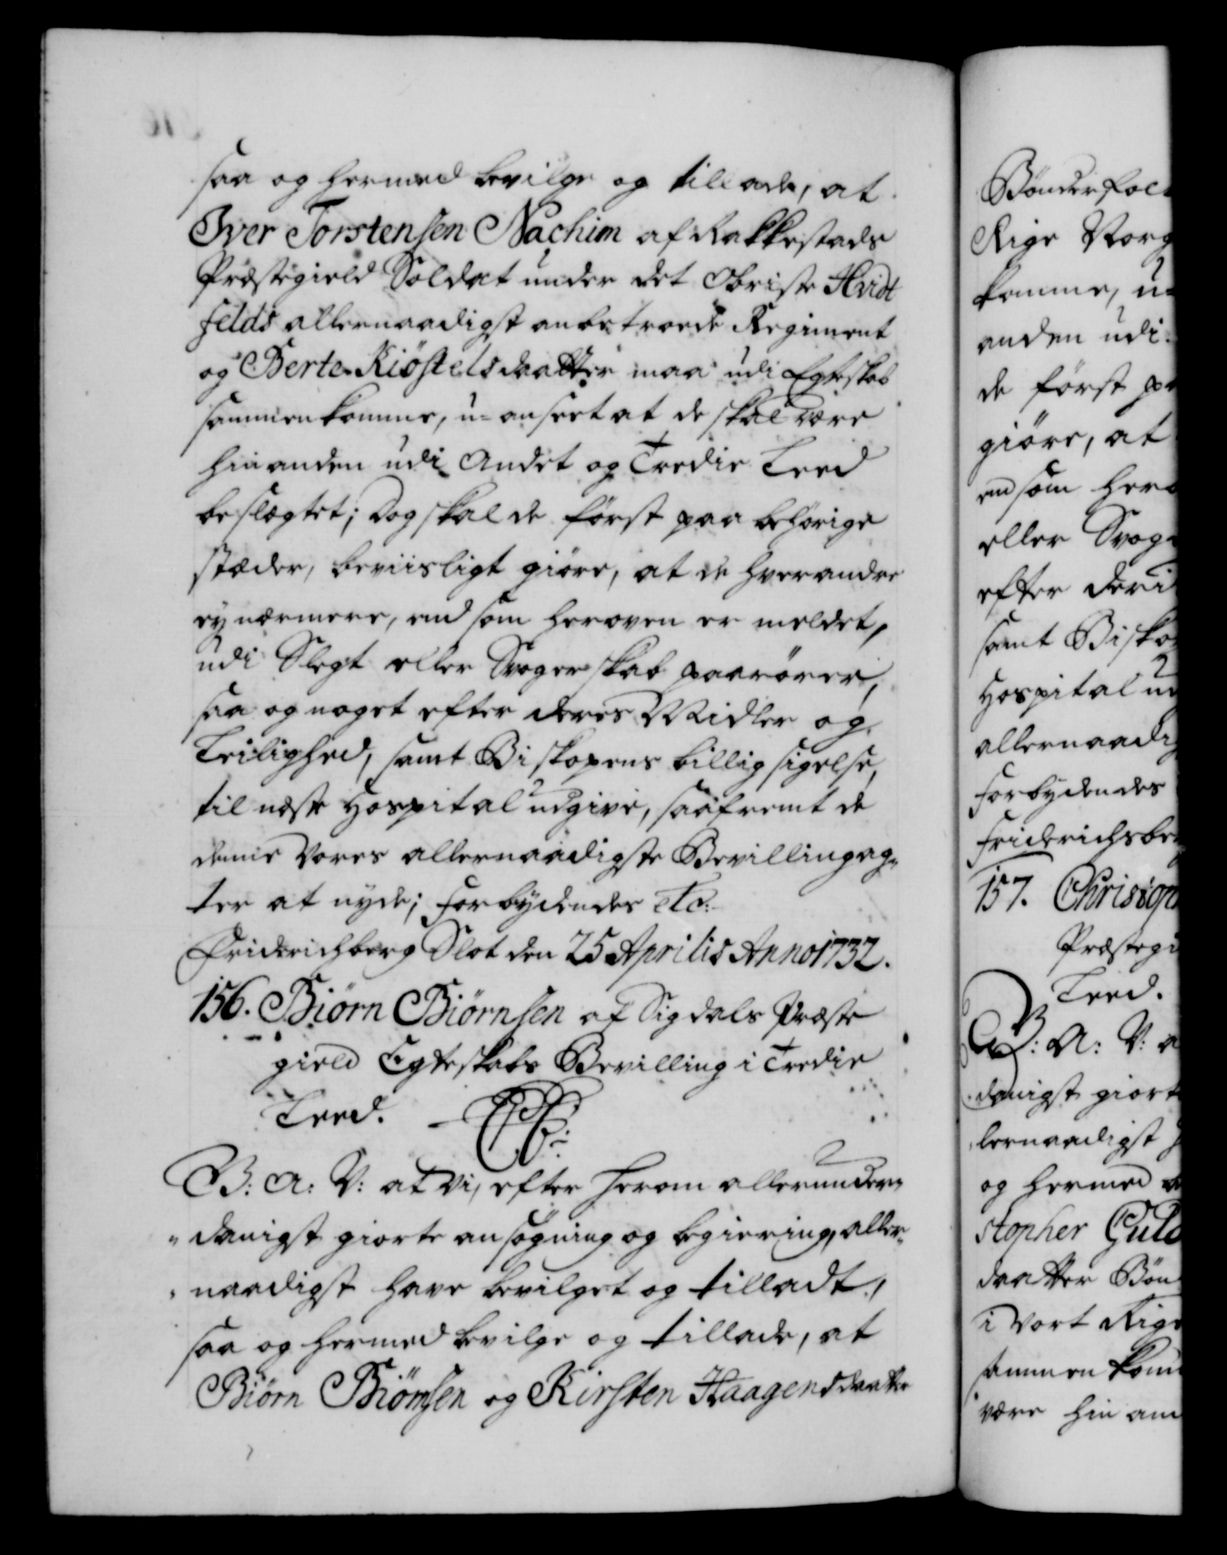 saa og hermed bevilge og tillade, at
Iver Torstensen Nachim af Rakkestads
Præstegield Soldat under det Obriste Hvidt
felds allernaadigst anbetroede Regiment
og Berte Kiøstelsdaatter maa udi Egteskab
sammenkomme, u-anseet at de skal være
hinanden udi Andet og Tredie Leed
beslægtet; Dog skal de først paa behörige
stæder, beviisligt giøre, at de hverandre
ey nærmere, end som heroven er meldet,
udi Slegt eller Svogerskab paarörer,
saa og noget efter deres Midler og
Leilighed, samt Biskopens billigsigelse,
til næste Hospital udgive, saafremt de
denne Vores allernaadigste Bevilling ag-
ter at nyde; Forbydendes etc:
Friderichsberg Slot den 25 Aprilis Anno 1732.
156. Biørn Biørnsen af Sigdals Præste
gield Egteskabs Bevilling i Tredie
Leed.
G: A: V: at Vi, efter herom allerunder-
danigst giorte ansøgning og begiering, aller-
naadigst have bevilget og tilladt,
saa og hermed bevilge og tillade, at
Biörn Biörnsen og Kirsten Haagensdaatter
Bönderfolk
Rige Norg
komme, u-
anden udi
de først pa
giöre, at
end som hero
eller Svoge
efter deris
samt Bisko
Hospital ud
allernaadig
Forbydendes
Friderichsber
157. Christop
Præstegi
Leed.
G: A: V: a
danigst giort
lernaadigst h
og hermed
stopher Guld
daatter Bön
i Vort Rige
sammenkom
være hinan